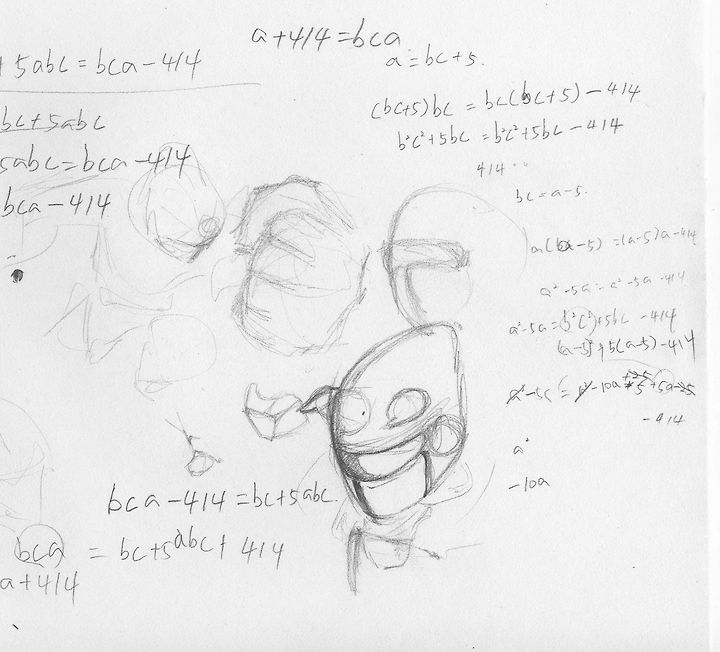 a+414=bca
+5abc=bca-414
a=bc+5.
bc+5abc
5abc=bca-414
bca-414
(bc+5)bc=bc(bc+5)-414
b²c²+5bc=b²c²+5bc-414
414
bc=a-5.
a(a-5)=(a-5)a-414
a²-5a=a²-5a-414
a²-5a=b²c²+5bc-414
(a-5)²+5(a-5)-414
-414
a²
-10a
bca-414=bc+5abc.
bca=bc+5abc+414
a+414